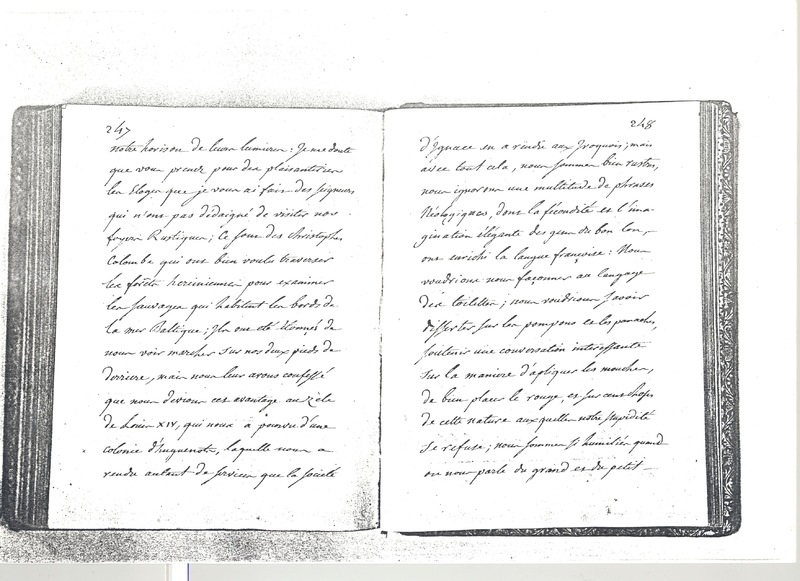 247
notre horison de leurs lumieres : Je me doute
que vous prenez pour des plaisanteries
les Eloges que je vous ai fait des seigneurs
qui n'ont pas dédaigné de visiter nos
foyers Rustiques; ce sont des Christophes
Colombe qui ont bien voulu traverser
les forêts herciniennes pour examiner
les sauvages qui habitent les bords de
la mer Baltique; Ils ont eté étonnés de
nous voir marcher sur nos deux pieds de
derriere, mais nous leur avons confessé
que nous devions cet avantage au zèle
de Louis XIV, qui nous à pourvu d'une
colonie d'huguenots, laquelle nous a
rendu autant de services que la societé
248
d'Ignace en a rendu aux Iroquois; mais
avec tout cela, nous sommes bien rustres,
nous ignorons une multitude de phrases
Néologiques, dont la fécondité et l'ima-
gination élégante des gens du bon ton,
ont enrichi la langue françoise : Nous
voudrions nous façonner au langage
des toilettes; nous voudrions savoir
disserter sur les pompons et les panaches,
soutenir une conversation interessante
sur la maniere d'apliquer les mouches,
de bien placer le rouge, et sur cent choses
de cette nature auxquelles notre stupidité
se refuse; nous sommes si humiliés quand
on nous parle du grand et du petit